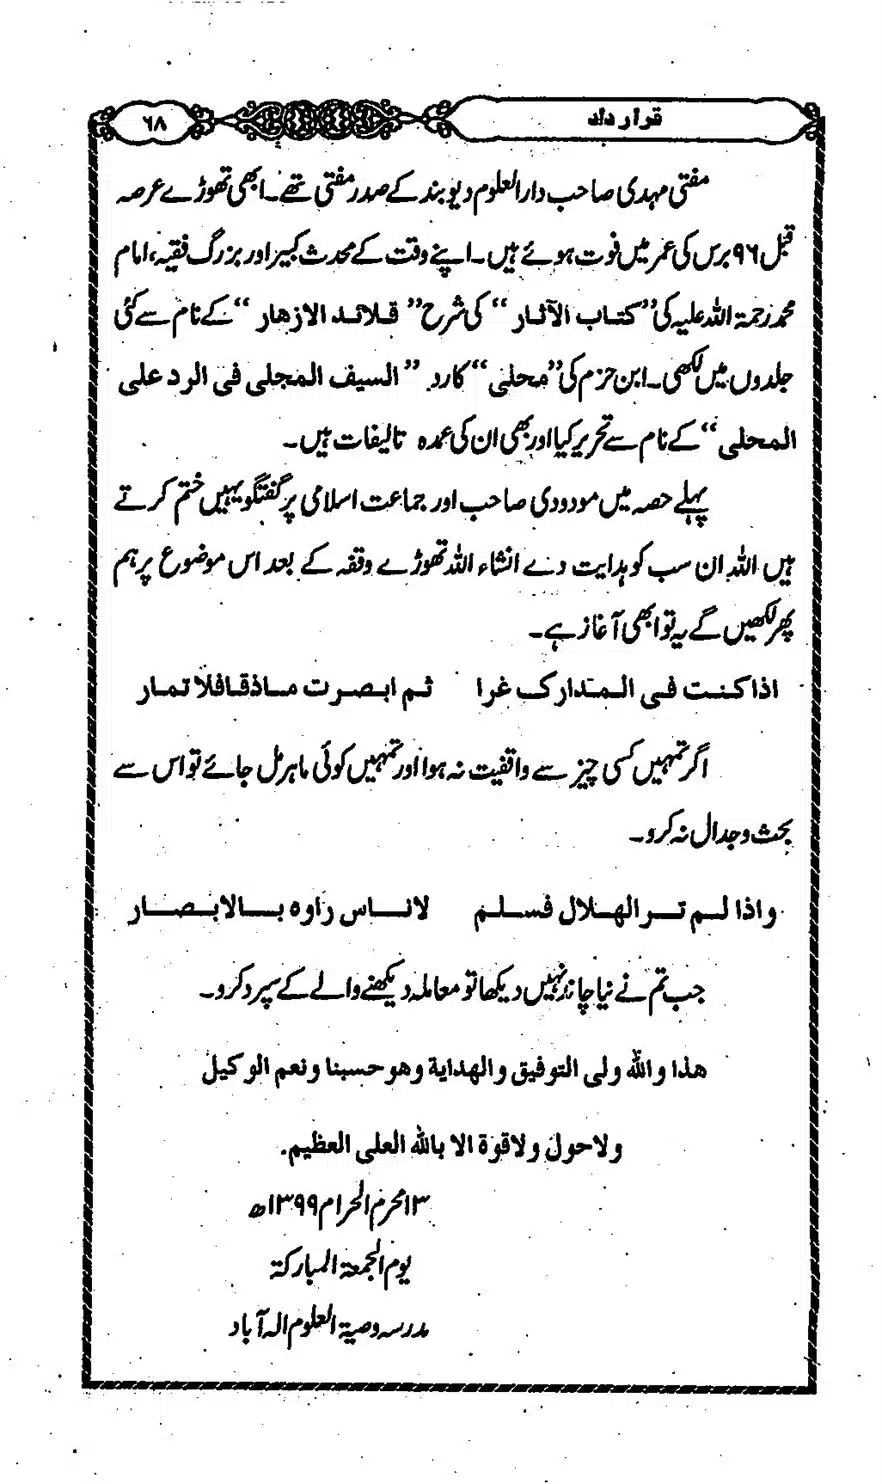 قرار داد
۶۸
مفتی مہدی صاحب دارالعلوم دیوبند کے صدر مفتی تھے۔ ابھی تھوڑے عرصہ
قبل ۹۶ برس کی عمر میں فوت ہوئے ہیں۔ اپنے وقت کے محدث کبیر اور بزرگ فقیہ، امام
محمد رحمۃ اللہ علیہ کی ”کتاب الآثار“ کی شرح ”قلائد الازهار“ کے نام سے کئی
جلدوں میں لکھی۔ ابن حزم کی ”محلی“ کا رد ”السیف المجلی فی الرد علی
المحلی“ کے نام سے تحریر کیا اور بھی ان کی عمدہ تالیفات ہیں۔
پہلے حصہ میں مودودی صاحب اور جماعت اسلامی پر گفتگو یہیں ختم کرتے
ہیں اللہ ان سب کو ہدایت دے انشاء اللہ تھوڑے وقفہ کے بعد اس موضوع پر ہم
پھر لکھیں گے یہ تو ابھی آغاز ہے۔
اذا كنت فی المدارک غرا ثم ابصرت ماذقا فلا تمار
اگر تمہیں کسی چیز سے واقفیت نہ ہو اور تمہیں کوئی ماہر مل جائے تو اس سے
بحث وجدال نہ کرو۔
واذا لم تر الهلال فسلم لاناس راوه بالابصار
جب تم نے نیا چاند نہیں دیکھا تو معاملہ دیکھنے والے کے سپرد کرو۔
هذا والله ولی التوفیق والهداية وهو حسبنا ونعم الوکیل
ولا حول ولا قوة الا بالله العلی العظیم.
۱۳ محرم الحرام ۱۳۹۹ھ
یوم الجمعۃ المبارکۃ
مدرسہ وصیۃ العلوم الہ آباد